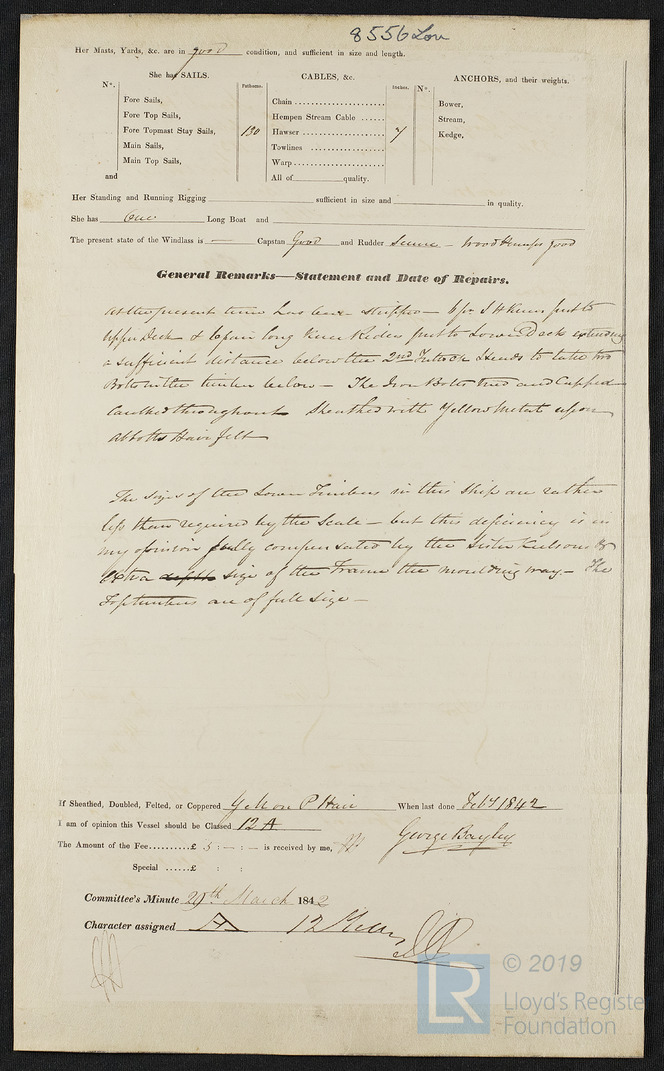 8556 Lon
Her Masts, Yards, &c. are in good condition, and sufficient in size and length.
She has SAILS. CABLES, &c. ANCHORS, and their weights.
N°. Fathoms. Inches. N°.
Fore Sails, Chain Bower,
Fore Top Sails, Hempen Stream Cable Stream,
Fore Topmast Stay Sails, 130 Hawser 7 Kedge,
Main Sails, Towlines
Main Top Sails, Warp
and All of quality.
Her Standing and Running Rigging sufficient in size and in quality.
She has One Long Boat and
The present state of the Windlass is — Capstan Good and Rudder Secure — Wood Pumps good
General Remarks—Statement and Date of Repairs.
At the present time has been stripped — 6 pr. I H Knees put to
Upper Deck & 6 pair long Knee Riders put to Lower Deck extending
a sufficient distance below the 2nd Futtock Heads to take two
Bolts in the timber below — The Iron Bolts and Capped
Caulked throughout Sheathed with Yellow Metal upon
Abbotts Hair felt
The sizes of the Lower Timbers in this Ship are rather
less than required by the Scale — but this deficiency is in
my opinion fully compensated by the Sister Keelsons &
Extra depth size of the Frame the moulding way — The
Toptimbers are of full size —
If Sheathed, Doubled, Felted, or Coppered Y M on P Hair When last done Feby 1842
I am of opinion this Vessel should be Classed 12 A
The Amount of the Fee..........£ 5 : — : — is received by me, George Bayley
Special ......£ : :
Committee's Minute 29th March 1842
Character assigned A 12
© 2019
LR
Lloyd's Register
Foundation